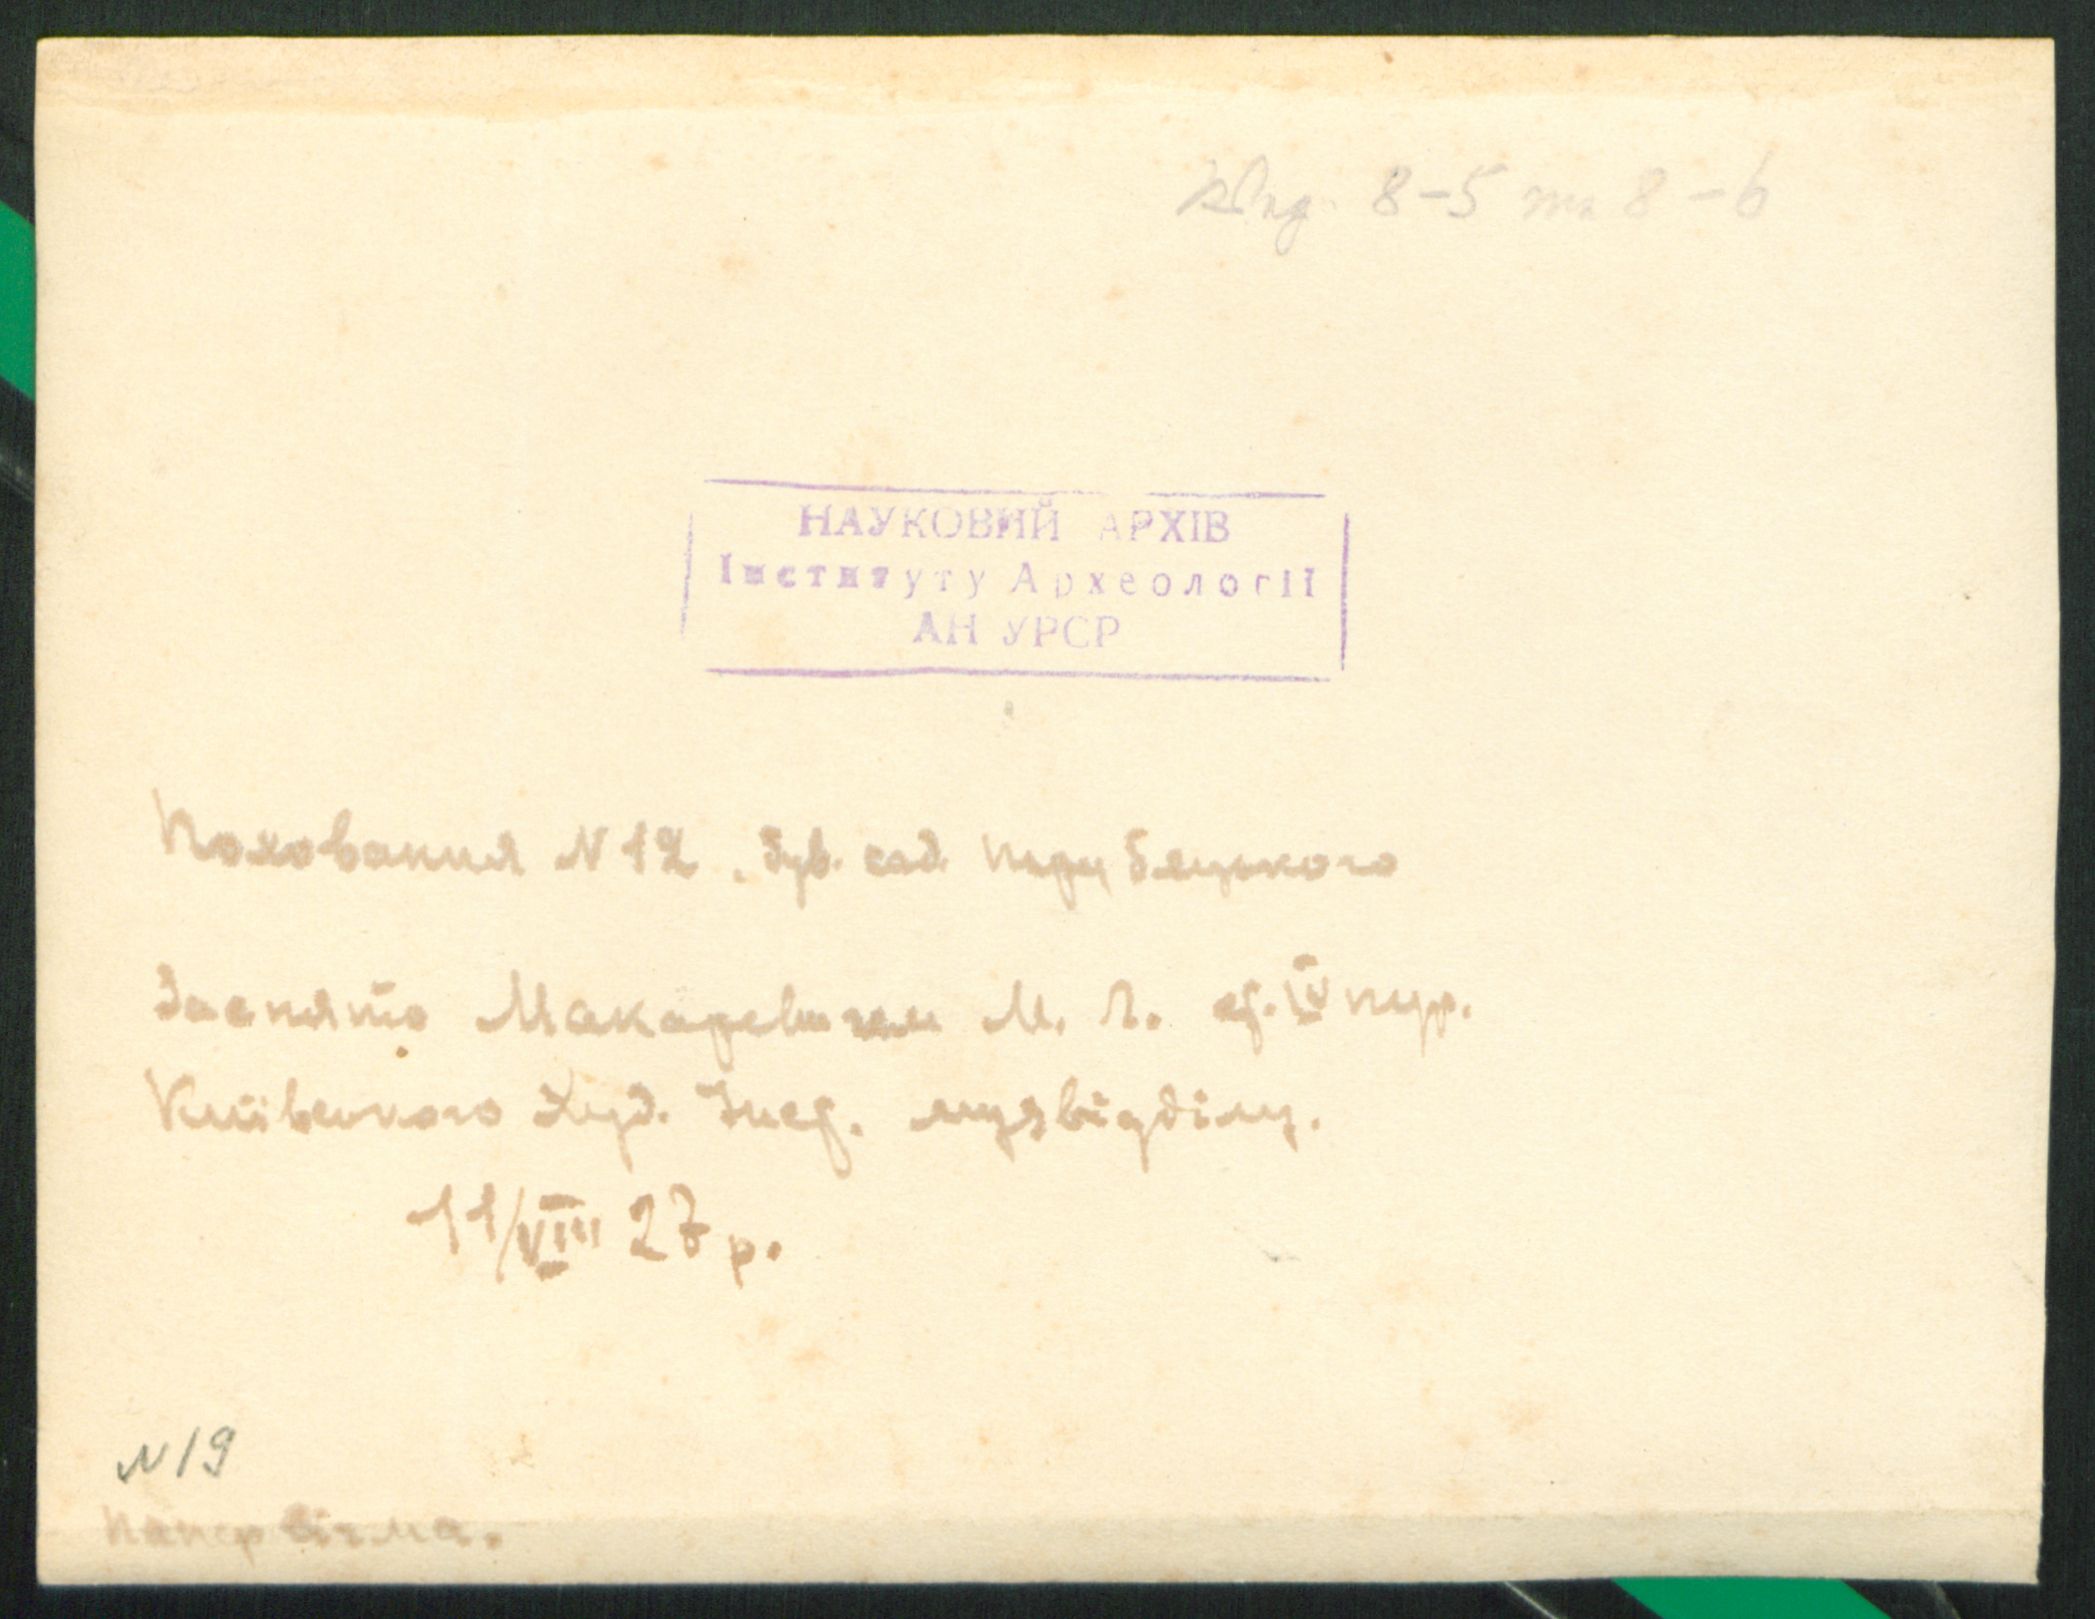 8-5 та 8-6
НАУКОВИЙ АРХІВ
Інституту Археології
АН УРСР
Поховання N 12. Зув. сад.
Заснято Макаревичем М. Л. ст. IV кур.
Київського Худ. Інст. музвідділу.
11/VIII 27 р.
N 19
Папер Сігма.